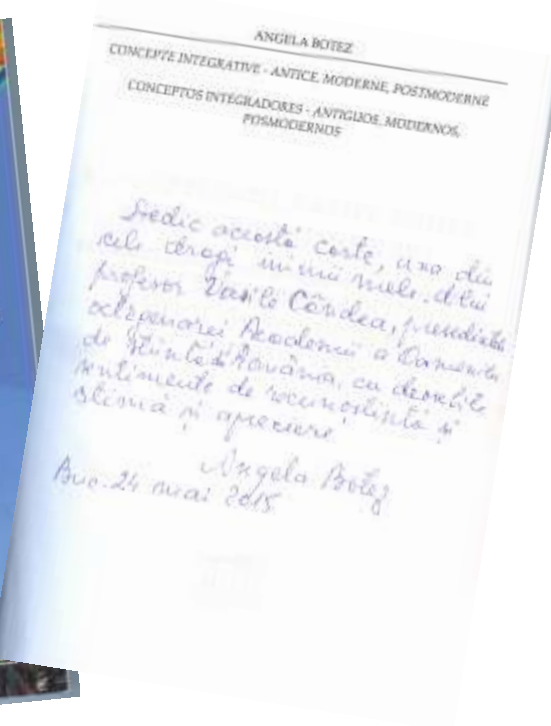 ANGELA BOTEZ
CONCEPTE INTEGRATIVE - ANTICE, MODERNE, POSTMODERNE
CONCEPTOS INTEGRADORES - ANTIGUOS, MODERNOS,
POSMODERNOS
Dedic această carte, una din
cele dragi inimii mele d-lui
profesor Vasile Cândea, președinte
Academiei a Oamenilor
de Știință România, cu deosebite
sentimente de recunoștință și
stimă și apreciere
Angela Botez
Buc. 24 mai 2015